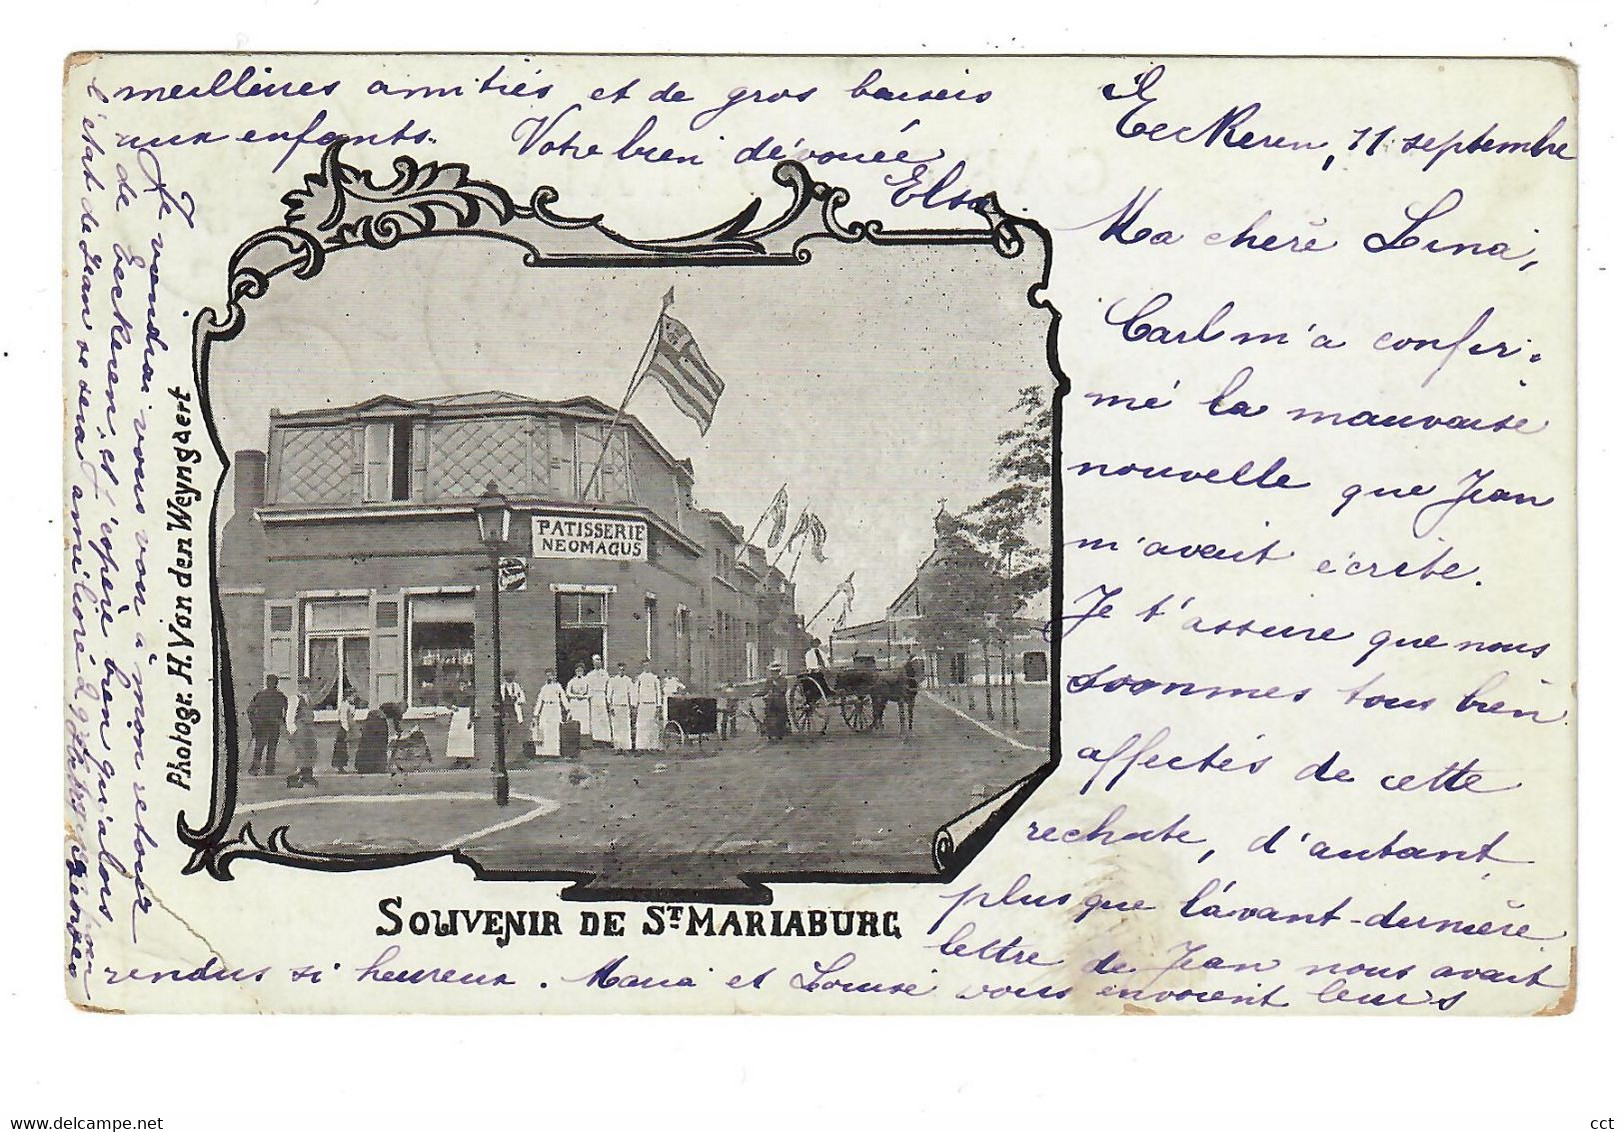 Eeckeren, 11 septembre
Ma chère Lina,
Carl m'a confir-
mé la mauvaise
nouvelle que Jean
m'avait écrite.
Je t'assure que nous
sommes tous bien
affectés de cette
rechute, d'autant
plus que l'avant-dernière
lettre de Jean nous avait
rendus si heureux. Maria et Louise vous envoient leurs
meilleures amitiés et de gros baisers
aux enfants. Votre bien dévouée
Elsa
Je viendrai vous voir à mon retour
de Eeckeren, et j'espère bien qu'alors
l'état de Jean se sera amélioré
PATISSERIE
NEOMAGUS
Photogr. H. Van den Weyngaert
SOUVENIR DE ST MARIABURG
www.delcampe.net
cct